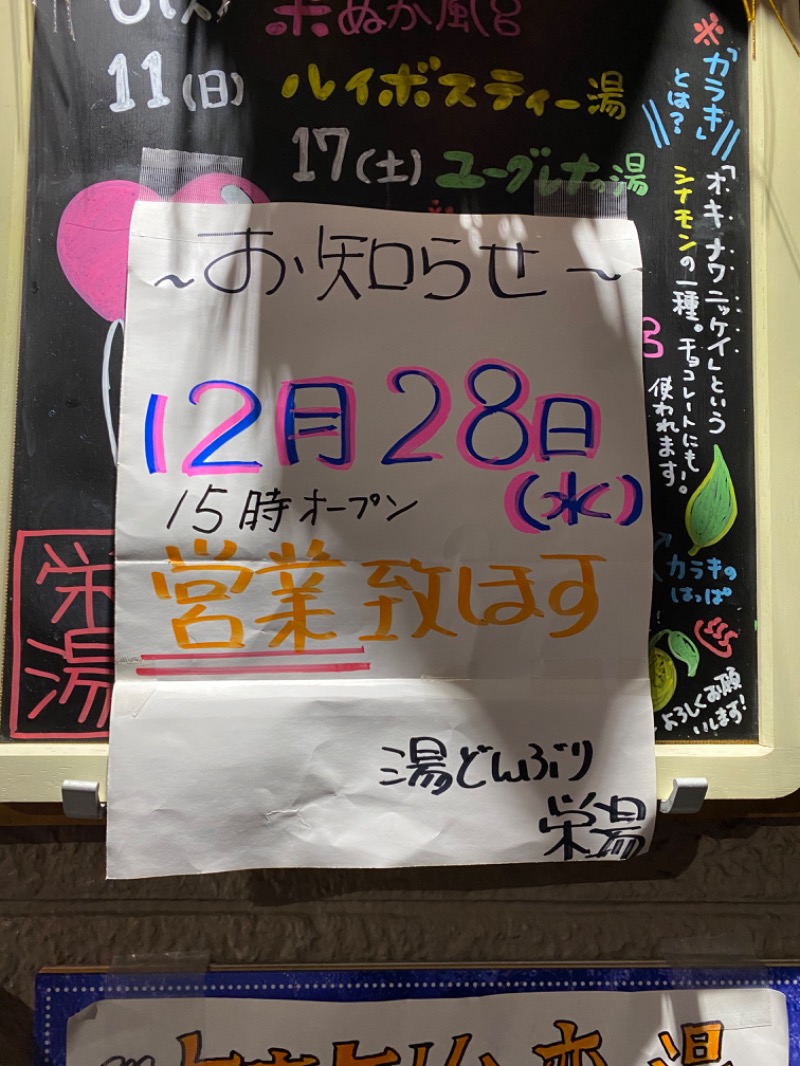 米ぬか風呂
11(日) ルイボスティー湯
17(土) ユーグレナの湯
※「カラキ」
とは?
「オキナワニッケイ」という
シナモンの一種。チョコレートにも
使われます。
カラキの
はっぱ
よろしくお願
いします!
栄
湯
~お知らせ~
12月28日
(水)
15時オープン
営業致します
湯どんぶり
栄湯